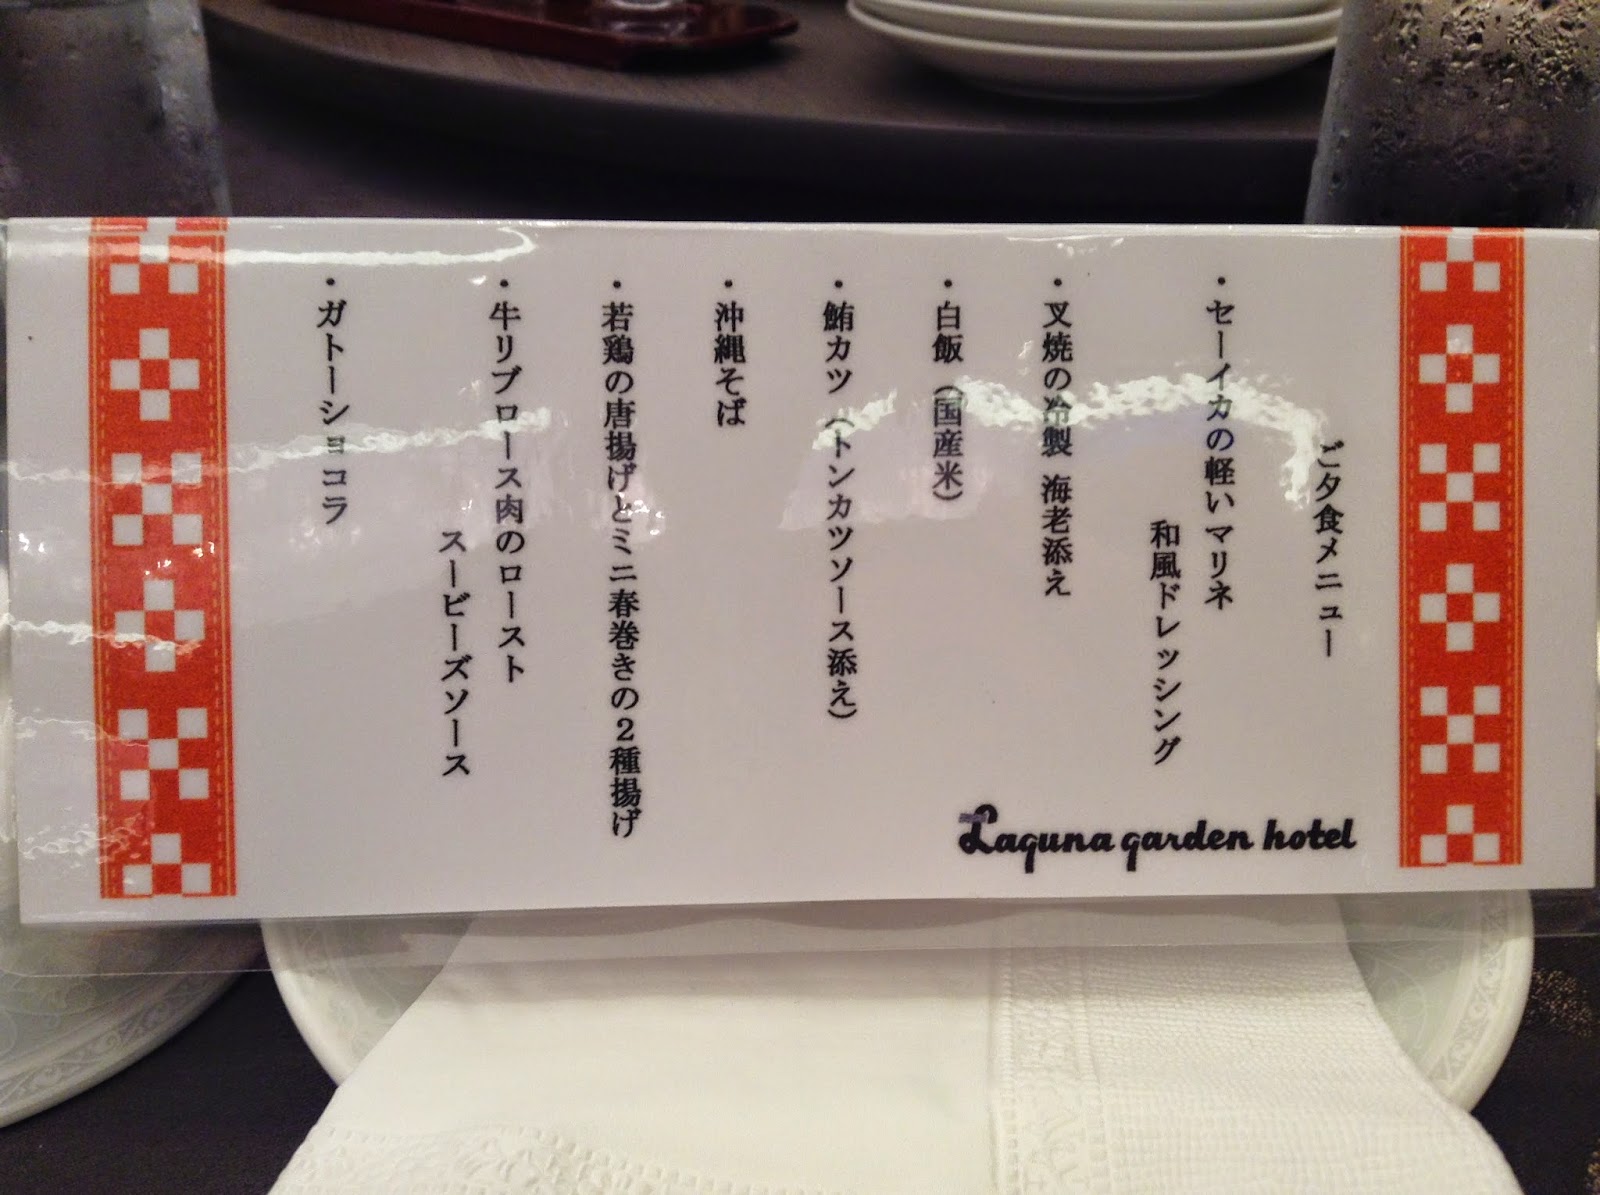 ご夕食メニュー
・セーイカの軽いマリネ
和風ドレッシング
・叉焼の冷製 海老添え
・白飯（国産米）
・鮪カツ（トンカツソース添え）
・沖縄そば
・若鶏の唐揚げとミニ春巻きの２種揚げ
・牛リブロース肉のロースト
スービーズソース
・ガトーショコラ
Laguna garden hotel